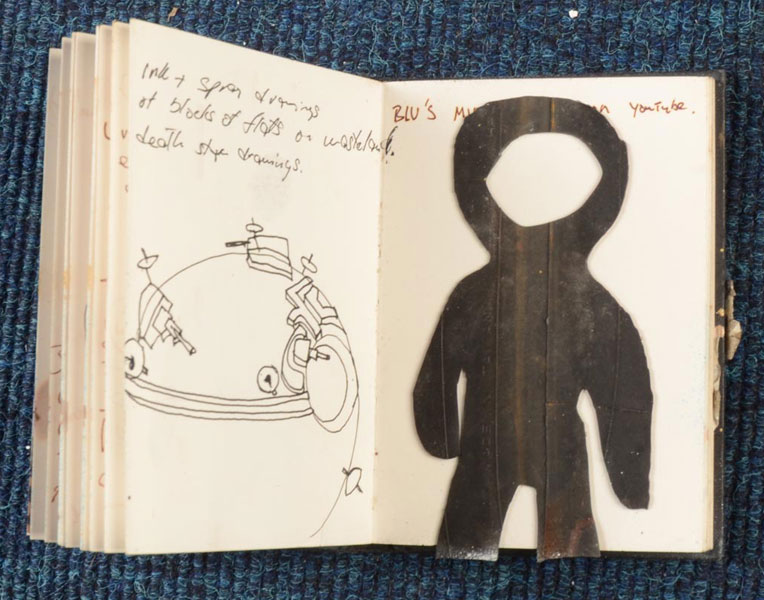 Ink + spray drawings
of blocks of flats on wasteland.
death star drawings.
BLU'S MU on YouTube.